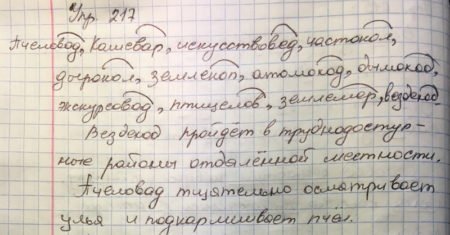 Упр. 217
Пчеловод, кашевар, искусствовед, частокол,
дырокол, землекоп, атомоход, дымоход,
экскурсовод, птицелов, землемер, вездеход
Вездеход пройдёт в труднодоступ-
ные районы отдалённой местности.
Пчеловод тщательно осматривает
улья и подкармливает пчёл.